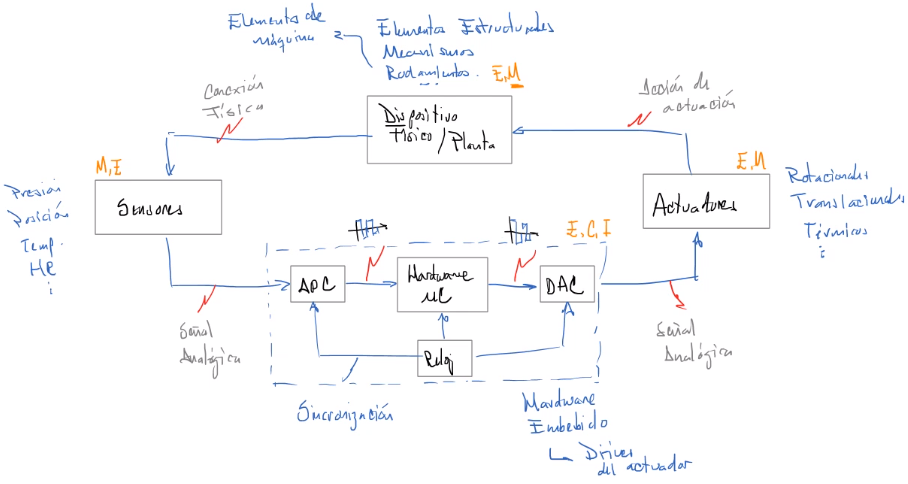 Elementos de
máquina
Elementos Estructurales
Mecanismos
Rodamientos.
E,M
Conexión
Física
Dispositivo
Físico / Planta
Acción de
actuación
M,E
Sensores
Presión
Posición
Temp.
HR
E,M
Actuadores
Rotacionales
Translacionales
Térmicos
E, C, I
ADC
Hardware
μC
DAC
Reloj
Señal
Analógica
Señal
Analógica
Sincronización
Hardware
Embebido
Driver
del actuador